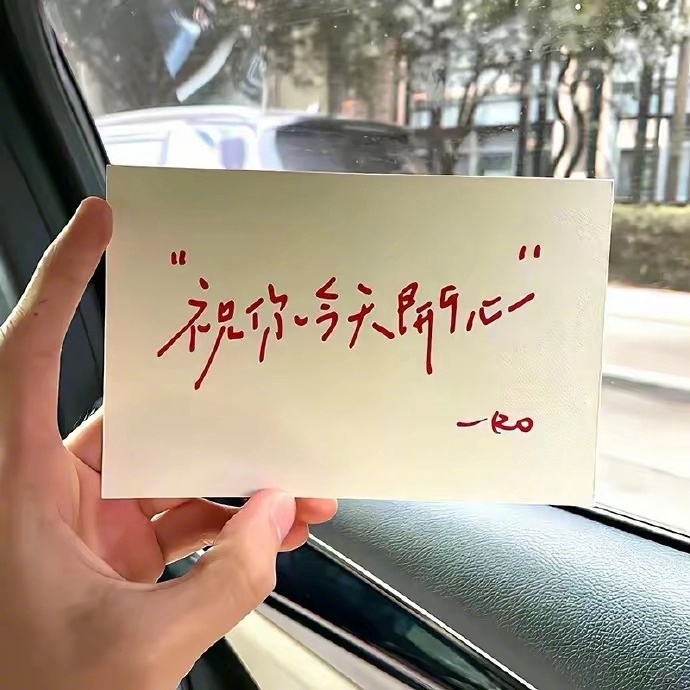 "祝你今天開心"
—KO